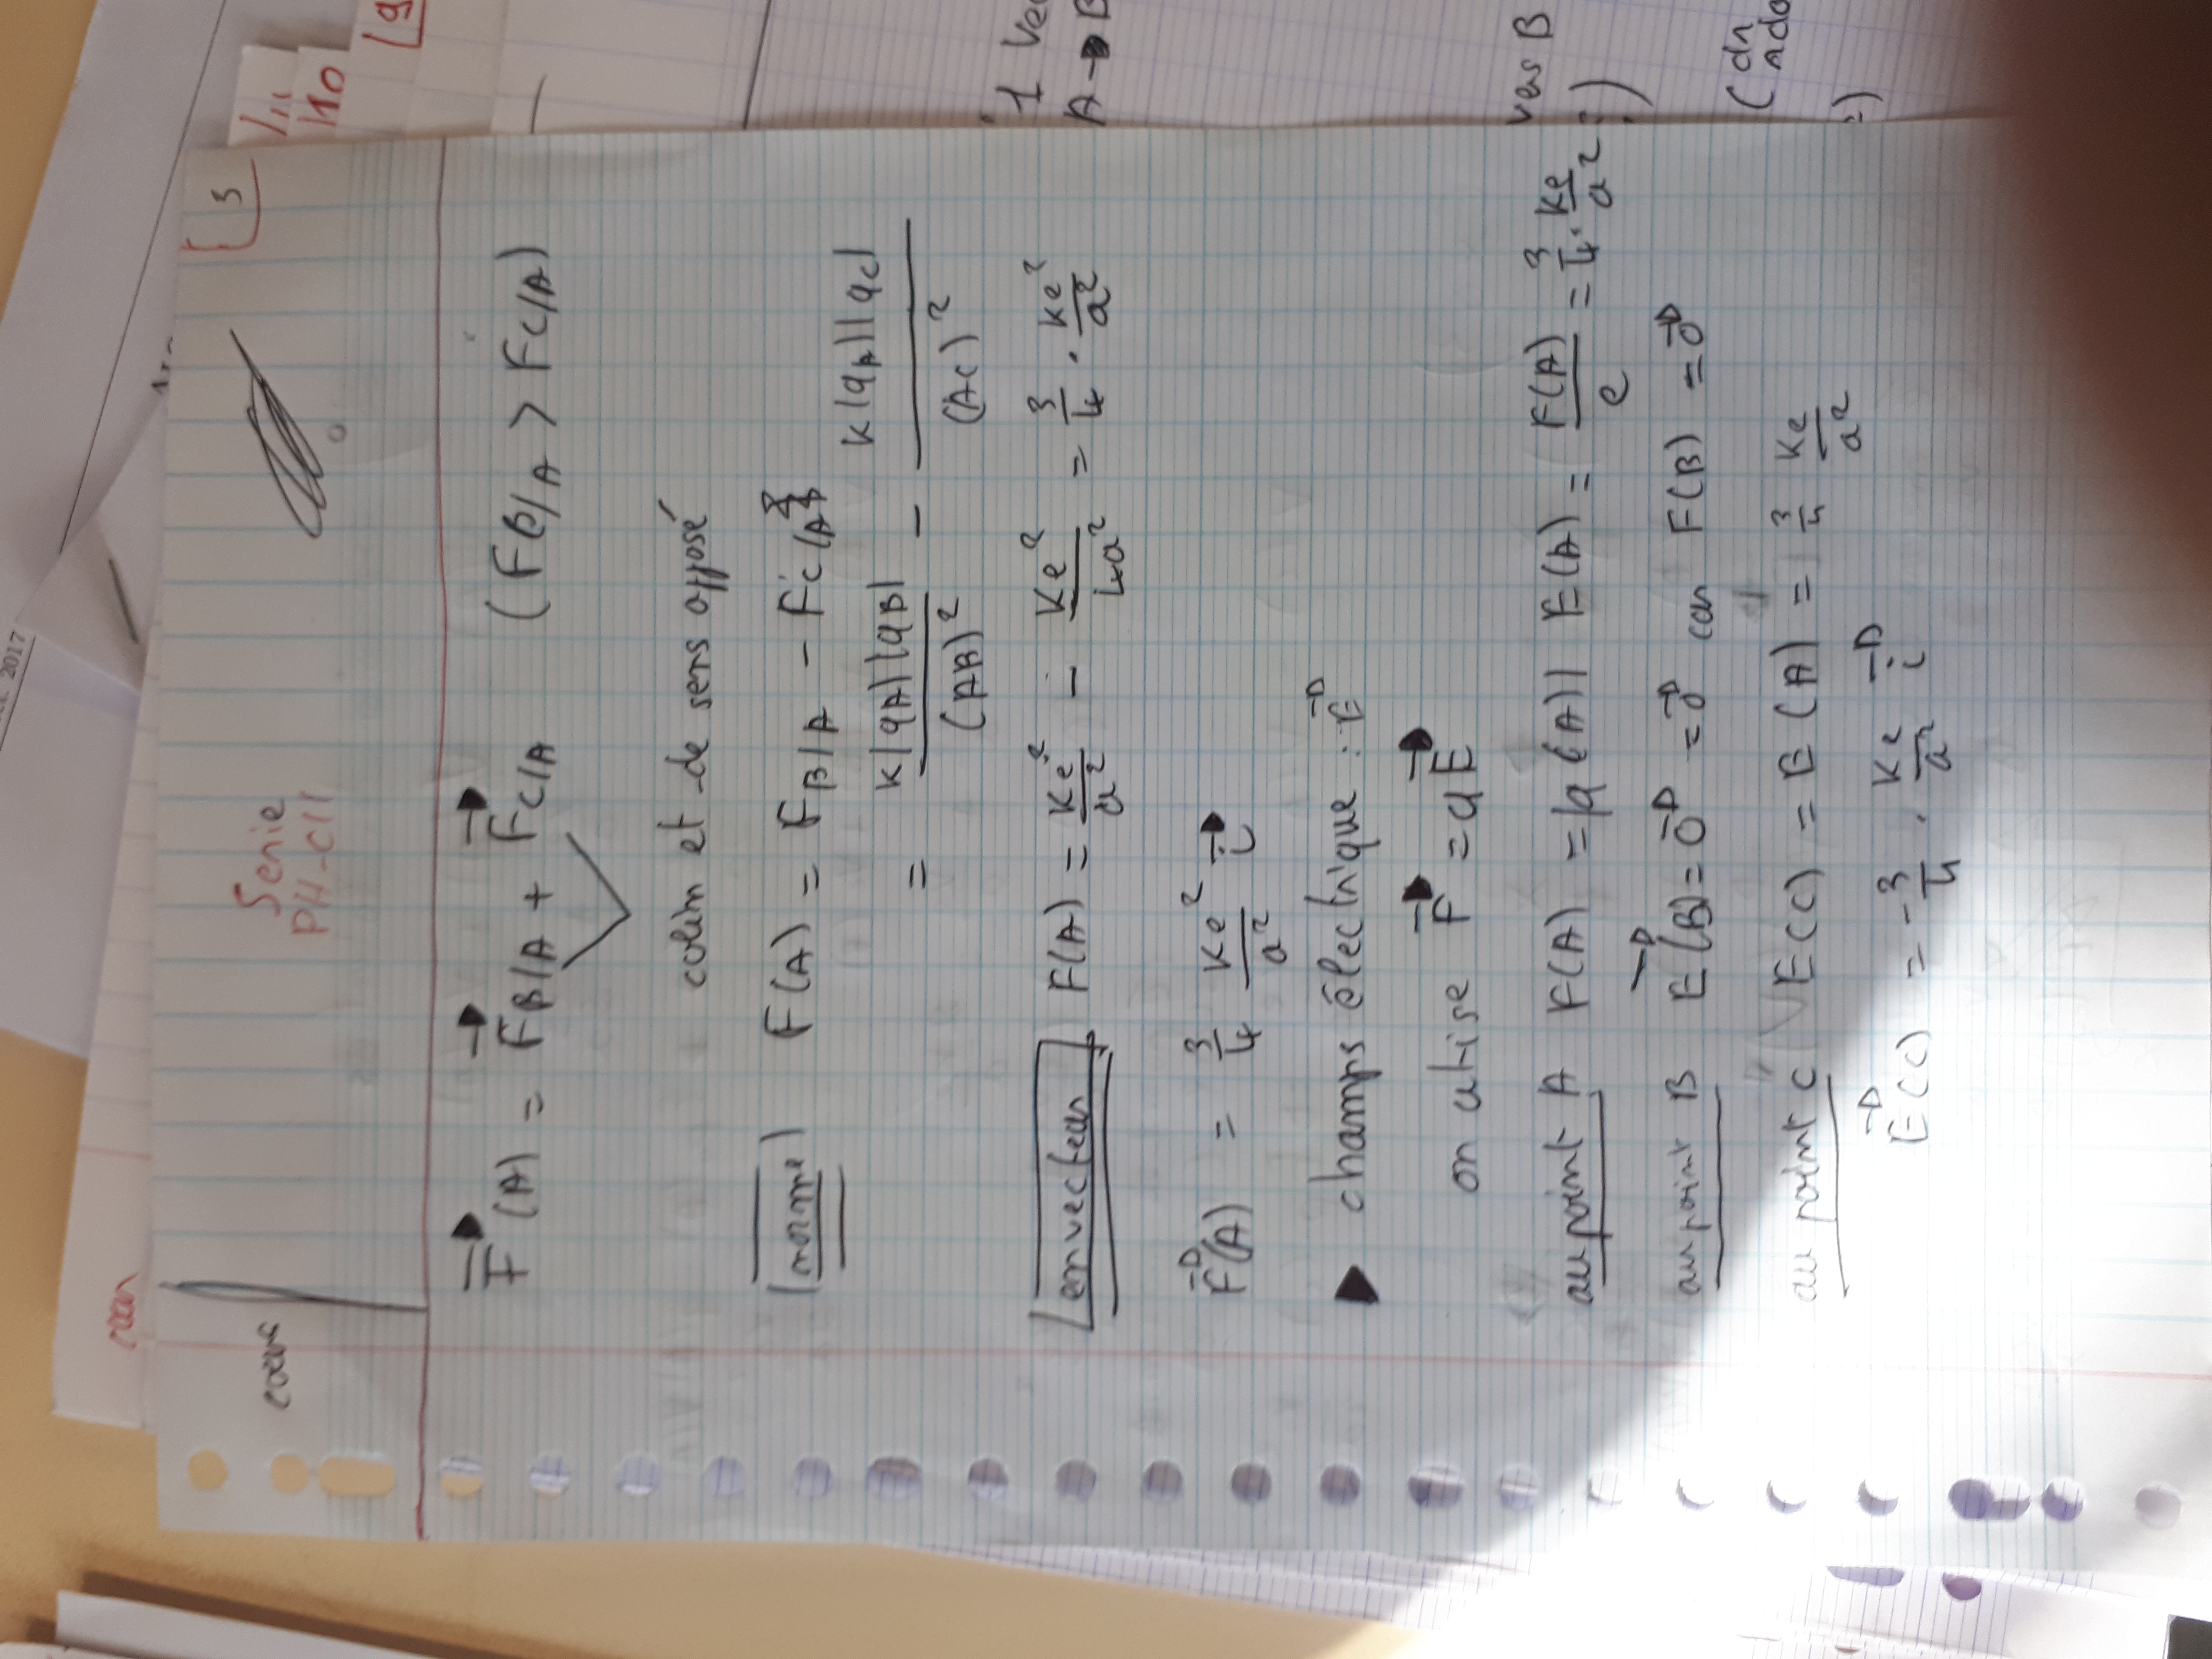 cours
Serie
PH-C11
3
F(A) = FB/A + FC/A (FB/A > FC/A)
colin et de sens opposé
norme F(A) = FB/A - FC/A
= K|qA||qB| / (AB)² - K|qA||qC| / (AC)²
en vecteur F(A) = Ke²/a² - Ke²/4a² = 3/4 . Ke²/a²
F(A) = 3/4 Ke²/a² i
▶ champs électrique : E
on utise F = qE
au point A F(A) = |q(A)| E(A) = F(A)/e = 3/4 . Ke/a²
au point B E(B) = 0 = 0 car F(B) = 0
au point C E(C) = E(A) = 3/4 Ke/a²
E(C) = - 3/4 . Ke/a² i
1 Vec
A→B
vers B
2017
/11
/10
9